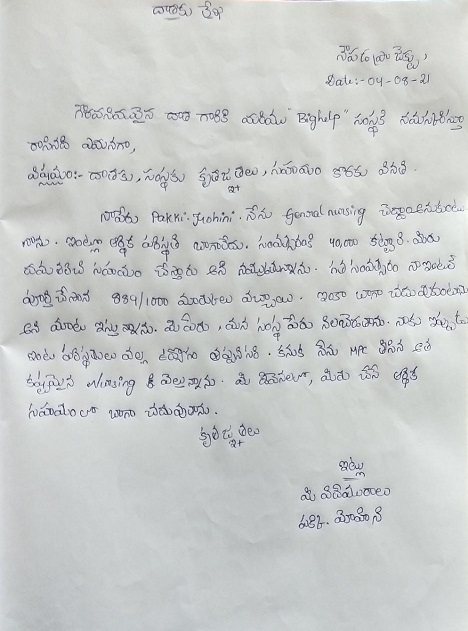 దాతకు లేఖ
నౌపడ ప్రాజెక్టు,
Date:- 04-08-21
గౌరవనియమైన దాత గారికి మరియు "Bighelp" సంస్థకి నమస్కరిస్తూ
రాసినది ఏమనగా,
విషయం:- దాతకు, సంస్థకు కృతజ్ఞతలు, సహాయం కొరకు వినతి.
నాపేరు Pakki.Mohini. నేను General nursing చెద్దామనుకుంటు
న్నాను. ఇంట్లో ఆర్థిక పరిస్థితి బాగాలేదు. సంవత్సరంకి 40,000 కట్టాలి. మీరు
దయతలచి సహాయం చేస్తారు అని నమ్ముతున్నాను. గత సంవత్సరం నా ఇంటర్
పూర్తి చేసాన 884/1000 మార్కులు వచ్చాయి. ఇంకా బాగా చదువుకుంటాను
అని మాట ఇస్తున్నాను. మీ పేరు, మన సంస్థ పేరు నిలబెడతాను. నాకు ఇప్పుడు
ఇంట పరిస్థితులు వల్ల ఉద్యోగం తప్పనిసరి. కనుక నేను MPC తీసిన అతి
కష్టమైన Nursing కి వెల్తున్నాను. మీ దీవెనలతో, మీరు చేసే ఆర్థిక
సహాయంలో బాగా చదువుతాను.
కృతజ్ఞతలు
ఇట్లు
మీ విదేయురాలు
పక్కి. మోహిని